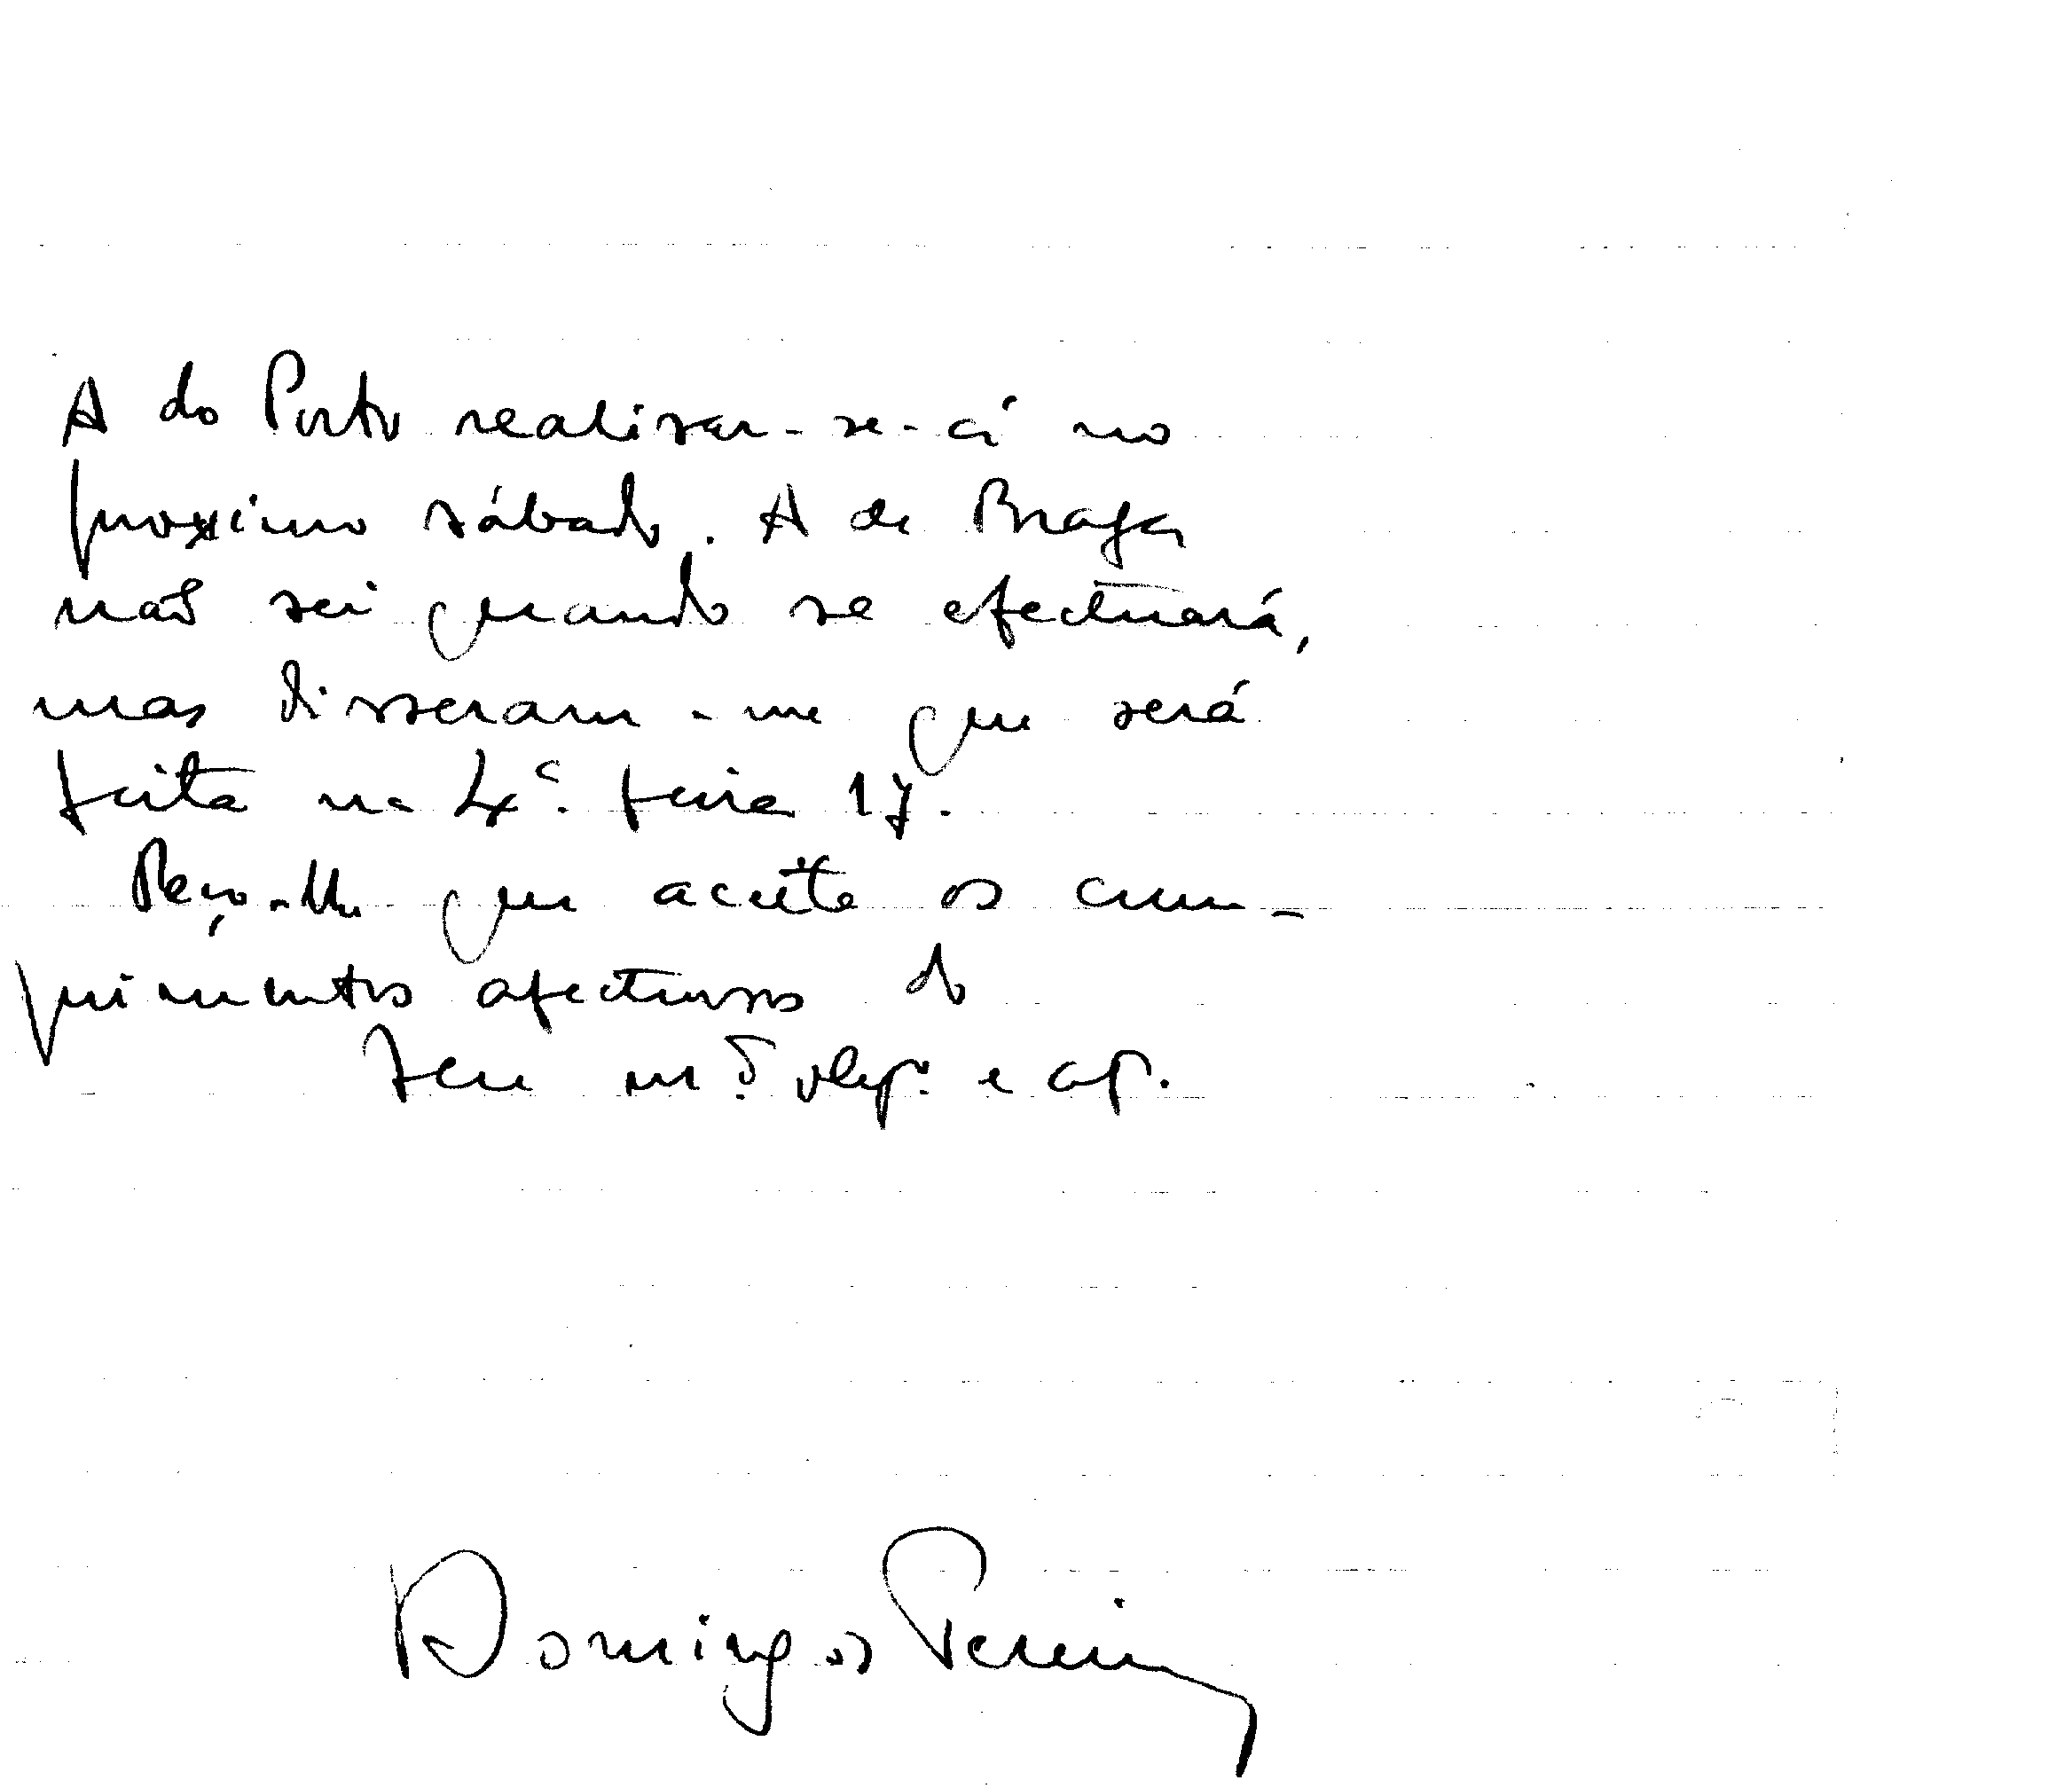 A do Porto realisar-se-á no
proximo sábado. A de Braga
não sei quando se efectuará,
mas disseram-me que será
feita na 4ª. feira 17.
Peço-lhe que aceite os cum-
primentos afectuosos do
Seu m.to e af.
Domingos Pereira